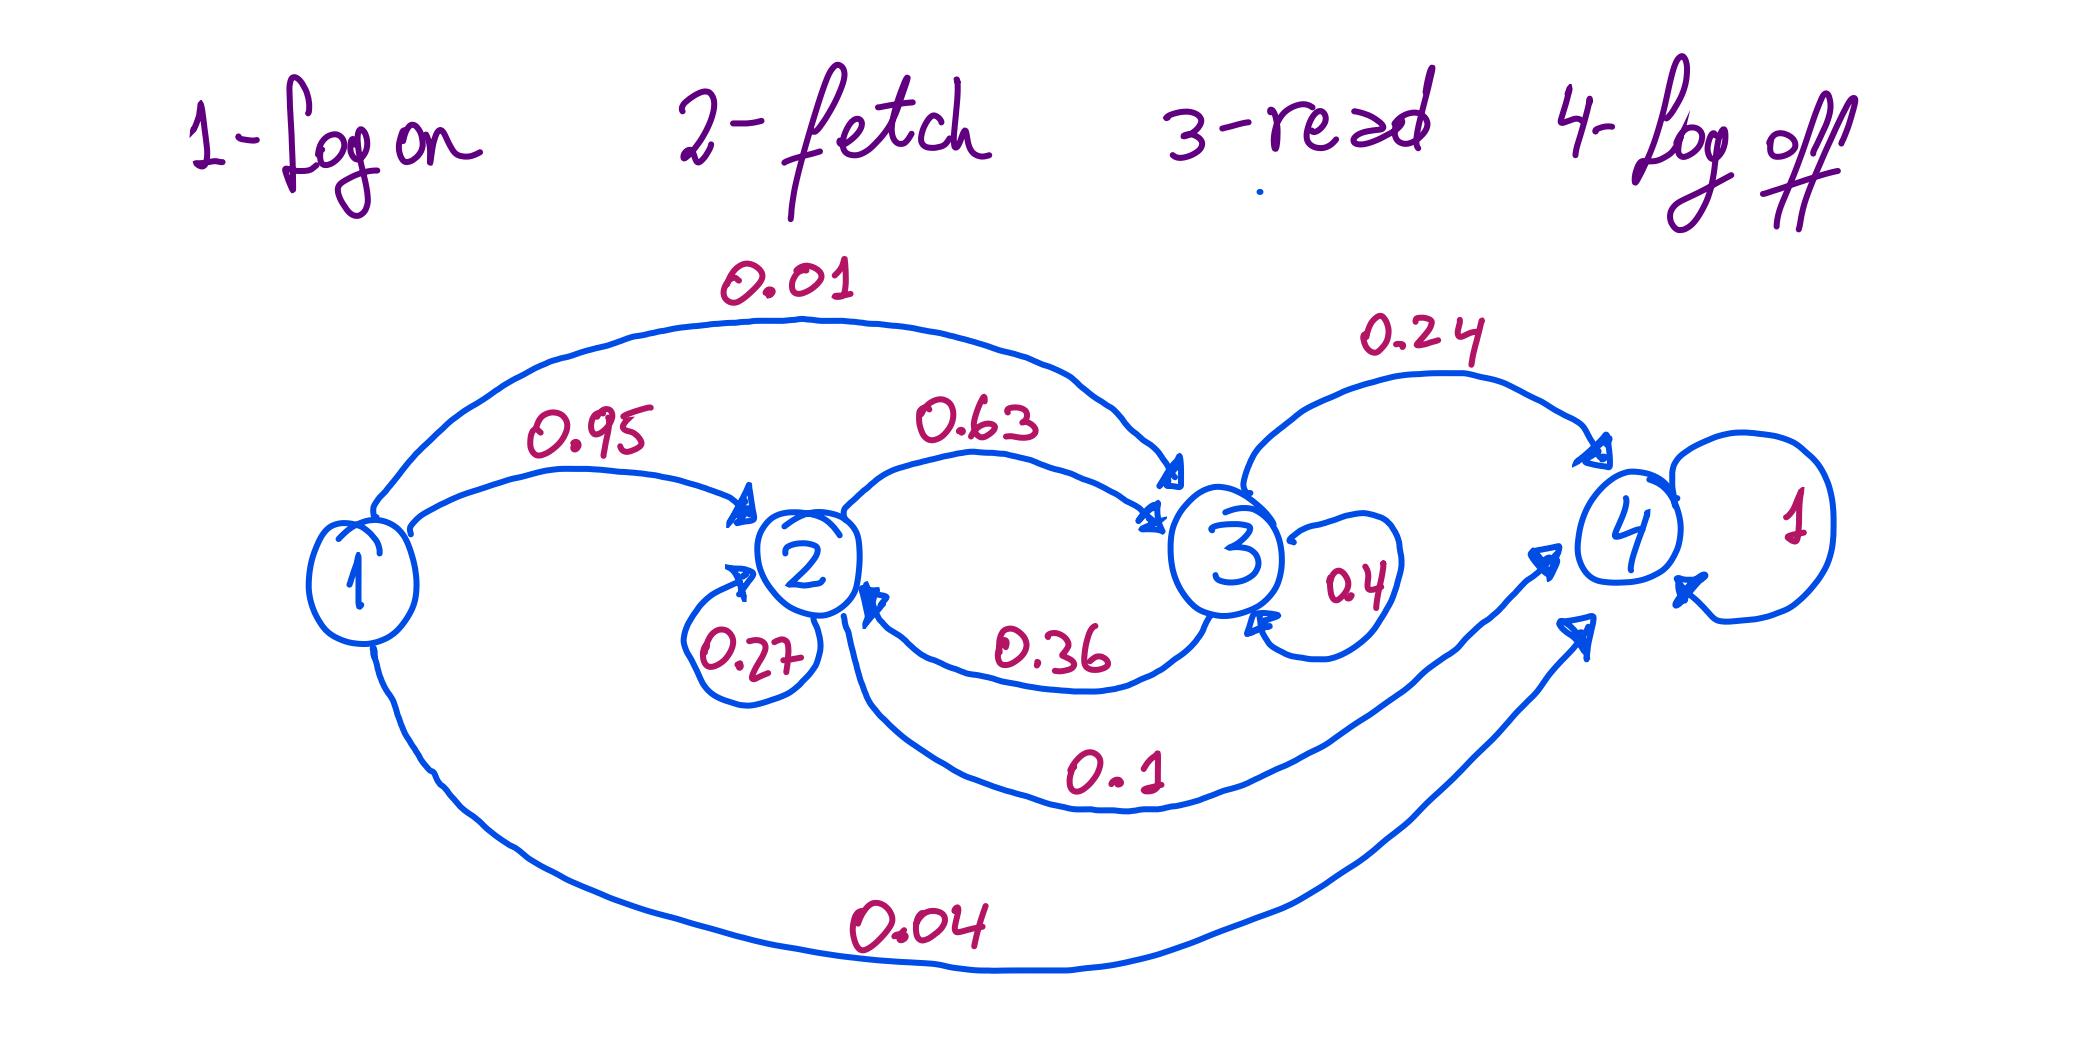 1-Log on 2-fetch 3-read 4-Log off
0.01
0.24
0.95 0.63
1 2 3 0.4 4 1
0.27 0.36
0.1
0.04